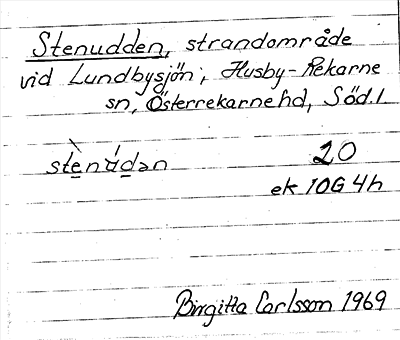 Stenudden, strandområde
vid Lundbysjön; Husby-Rekarne
sn, Österrekarne hd, Söd.l
20
ek 10G 4h
Birgitta Carlsson 1969